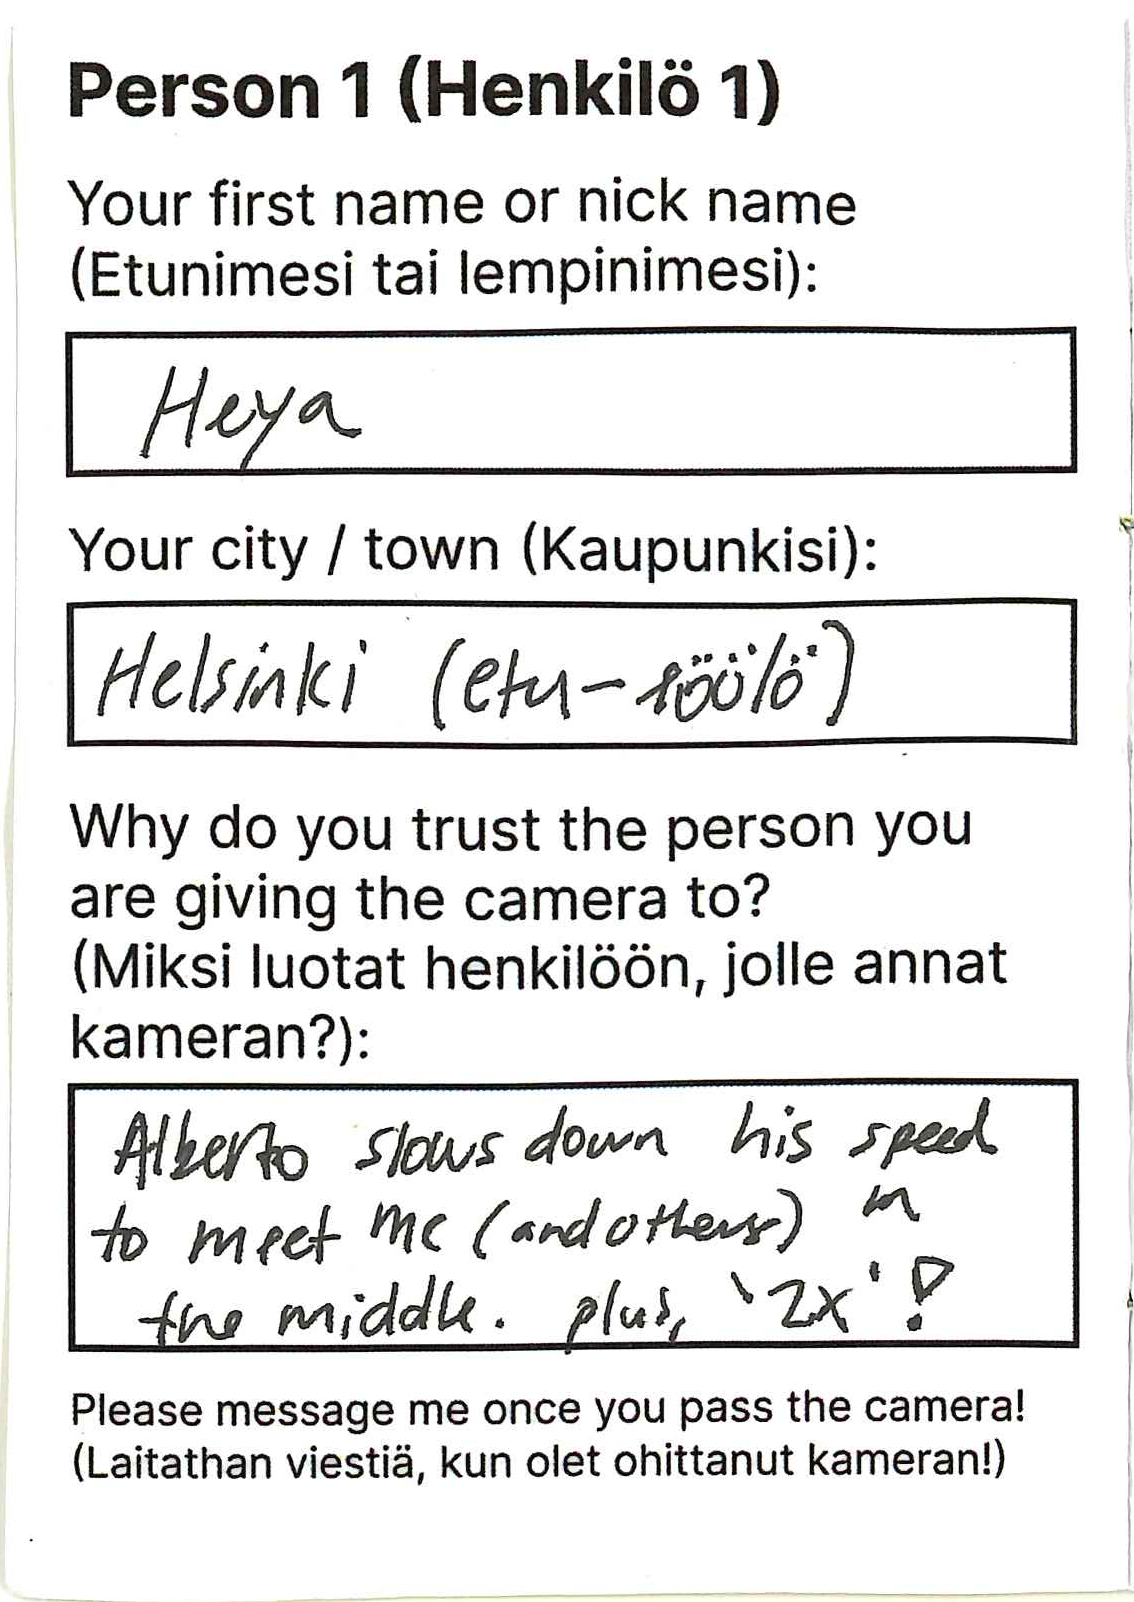 Person 1 (Henkilö 1)
Your first name or nick name
(Etunimesi tai lempinimesi):
Heya
Your city / town (Kaupunkisi):
Helsinki (etu-töölö)
Why do you trust the person you
are giving the camera to?
(Miksi luotat henkilöön, jolle annat
kameran?):
Alberto slows down his speed
to meet me (and others) in
the middle. plus, '2x'!
Please message me once you pass the camera!
(Laitathan viestiä, kun olet ohittanut kameran!)